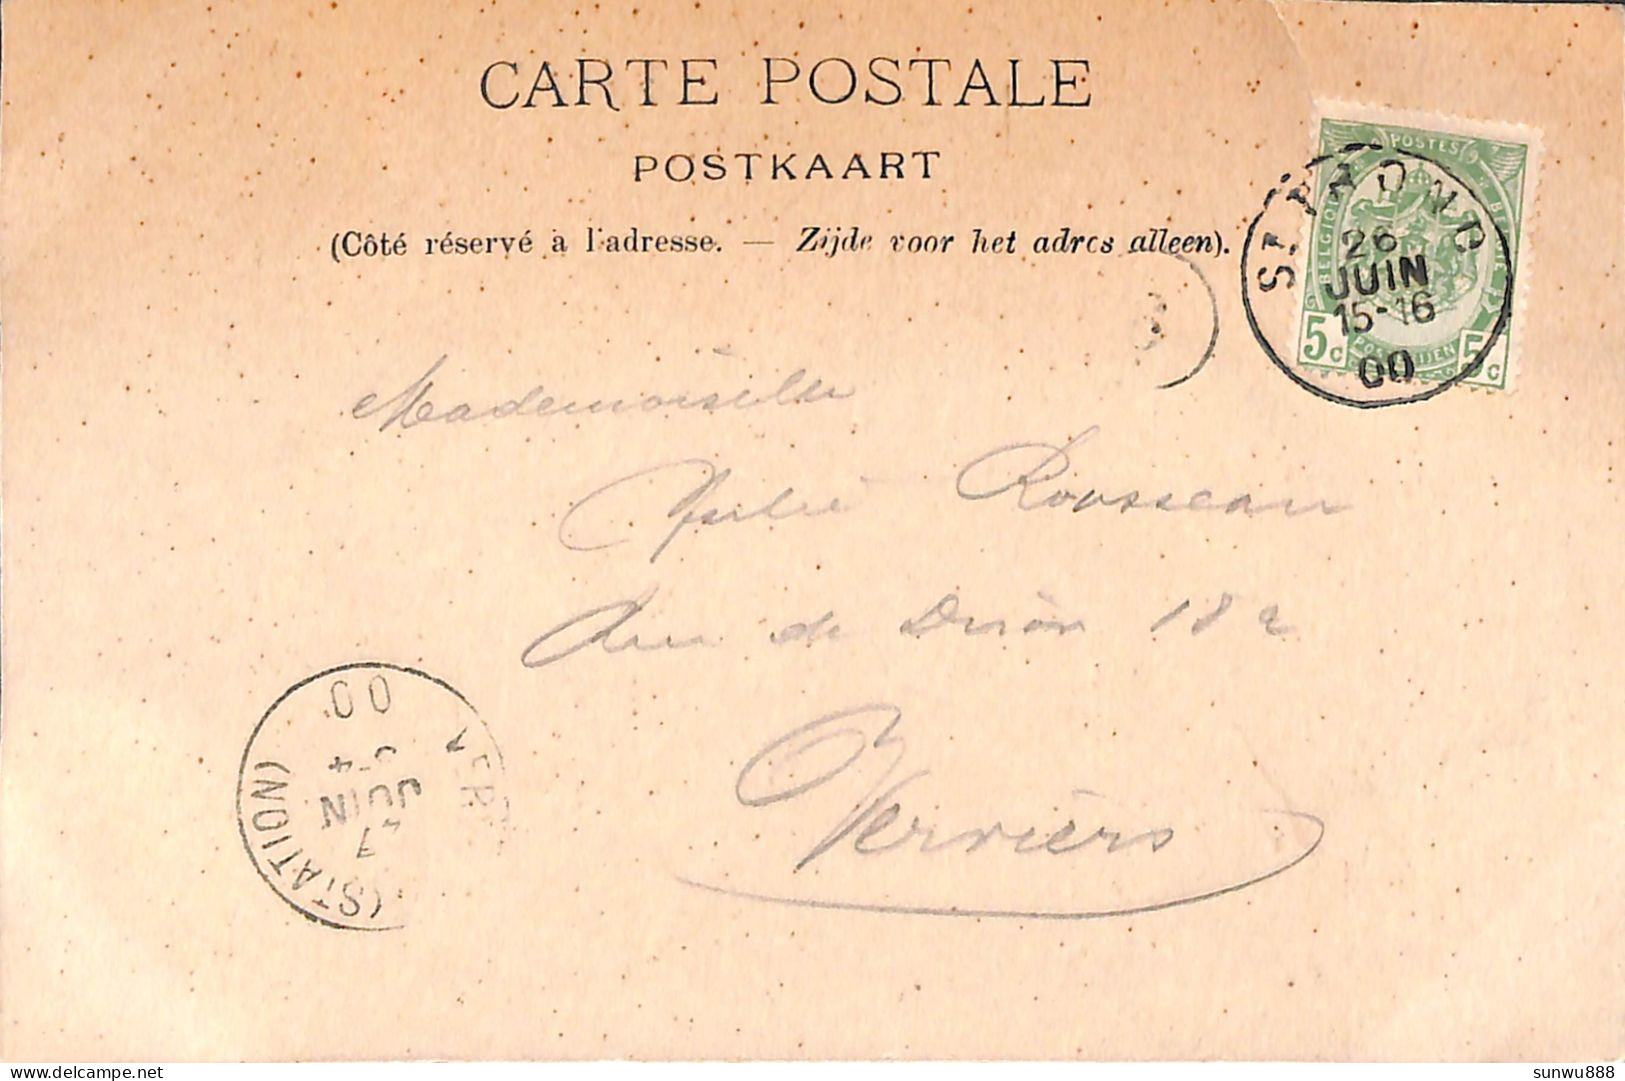 CARTE POSTALE
POSTKAART
(Côté réservé à l'adresse. — Zijde voor het adres alleen).
POSTES
BELGIQUE
26
JUIN
15-16
00
5c 5c
Mademoiselle
Rousseau
Rue de Dison 182
Verviers
00
JUIN
(STATION)
delcampe.net
sunwu888